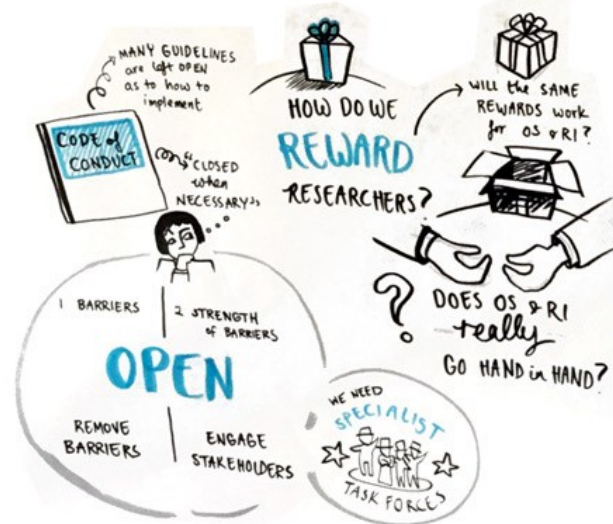 MANY GUIDELINES
are left OPEN
as to how to
implement
CODE of
CONDUCT
"CLOSED
when
NECESSARY"
HOW DO WE
REWARD
RESEARCHERS?
WILL the SAME
REWARDS work
for OS & RI?
DOES OS & RI
really
GO HAND in HAND?
?
1 BARRIERS
2 STRENGTH
of BARRIERS
OPEN
REMOVE
BARRIERS
ENGAGE
STAKEHOLDERS
WE NEED
SPECIALIST
TASK FORCES